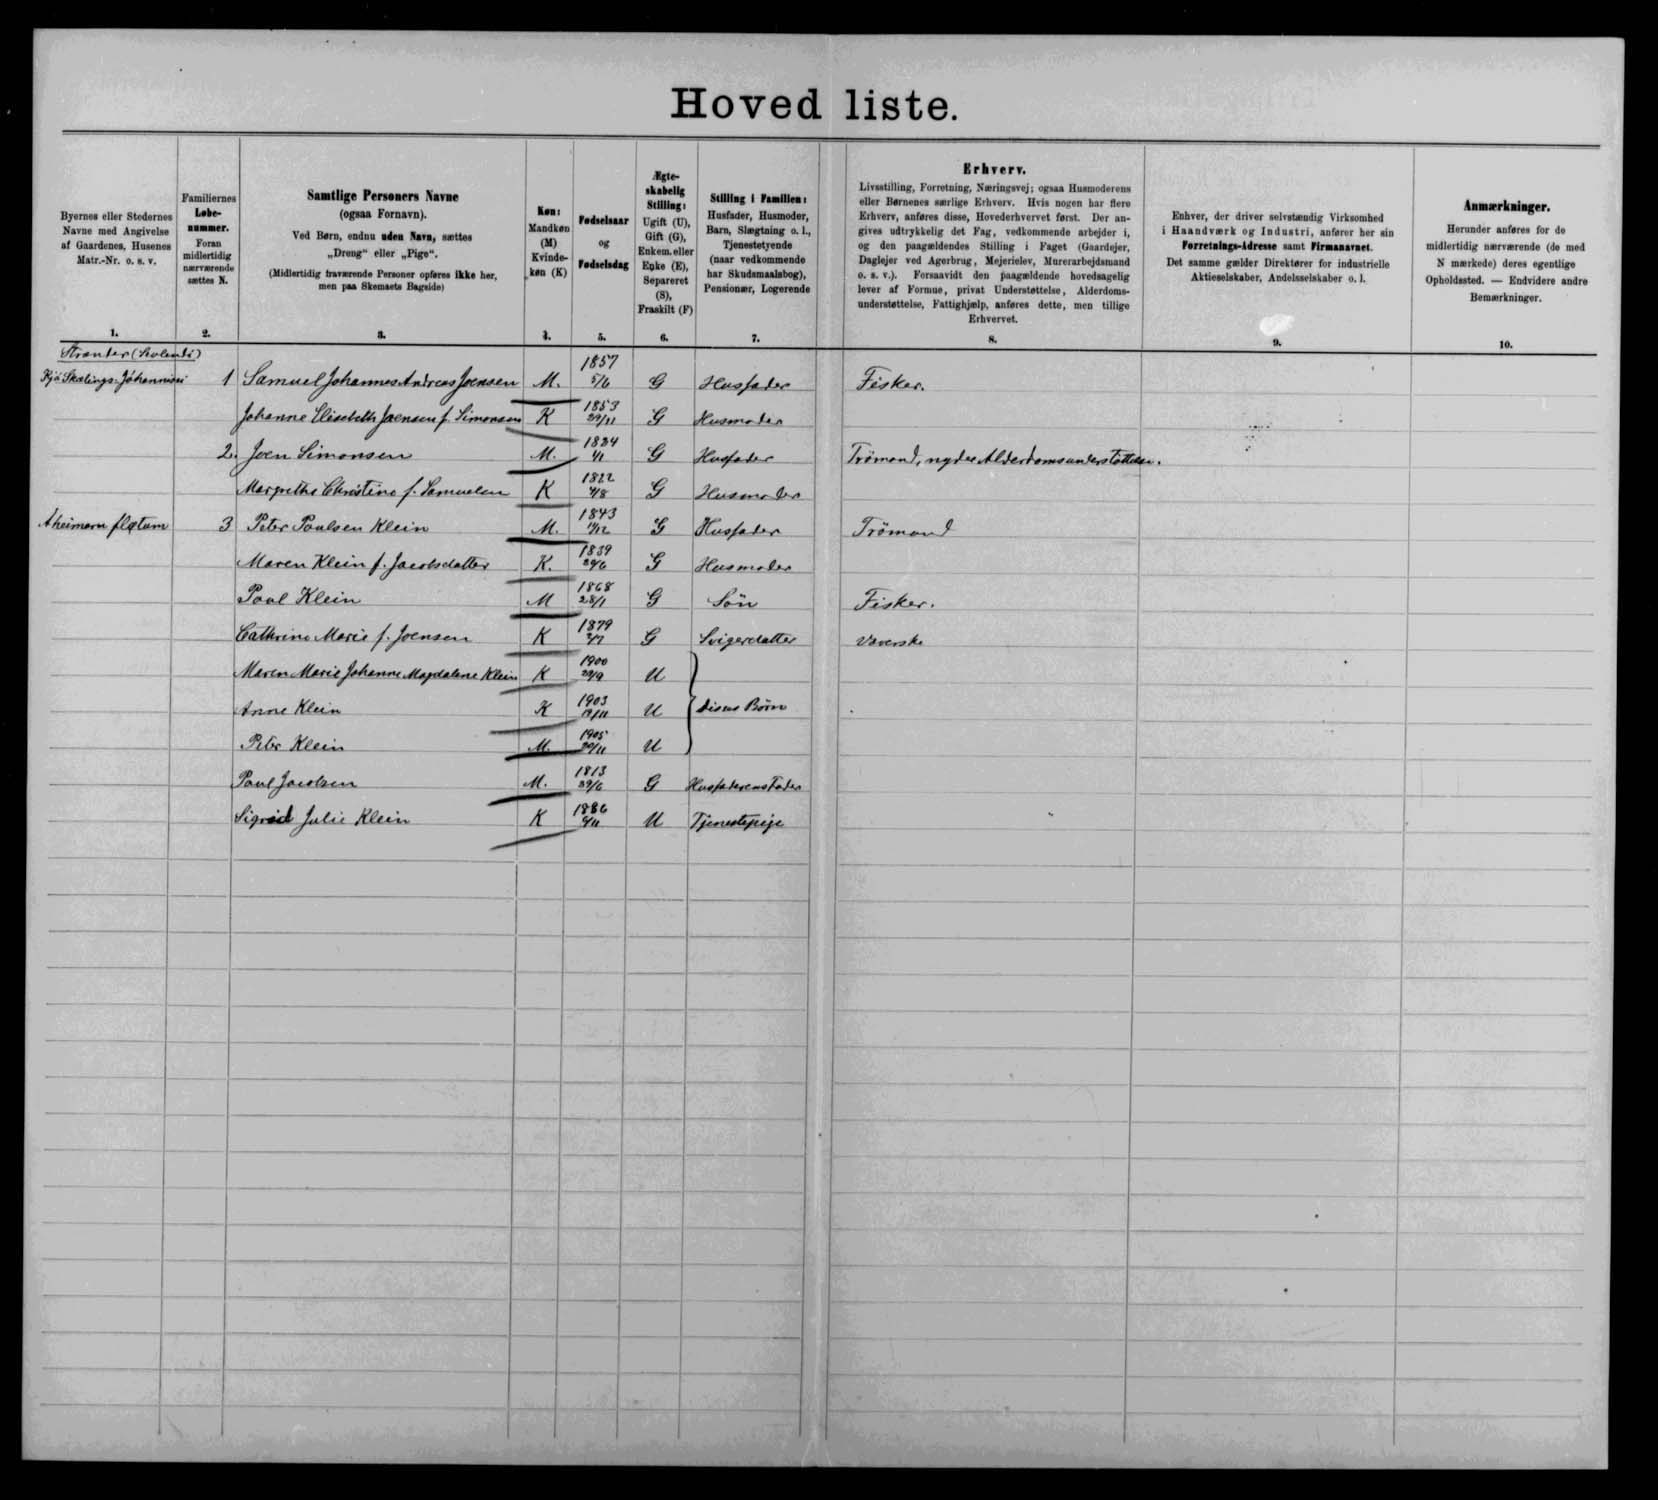 Hoved liste.
Byernes eller Stedernes Navne med Angivelse af Gaardenes, Husenes Matr.-Nr. o. s. v.
Familiernes Løbe-nummer. Foran midlertidig nærværende sættes N.
Samtlige Personers Navne
(ogsaa Fornavn).
Ved Børn, endnu uden Navn, sættes
„Dreng“ eller „Pige“.
(Midlertidig fraværende Personer opføres ikke her,
men paa Skemaets Bagside)
Køn: Mandkøn (M) Kvinde-køn (K)
Fødselsaar og Fødselsdag
Ægte-skabelig Stilling: Ugift (U), Gift (G), Enkem. eller Enke (E), Separeret (S), Fraskilt (F)
Stilling i Familien: Husfader, Husmoder, Barn, Slægtning o. l., Tjenestetyende (naar vedkommende har Skudsmaalsbog), Pensionær, Logerende
Erhverv.
Livsstilling, Forretning, Næringsvej; ogsaa Husmoderens
eller Børnenes særlige Erhverv. Hvis nogen har flere
Erhverv, anføres disse, Hovederhvervet først. Der an-
gives udtrykkelig det Fag, vedkommende arbejder i,
og den paagældendes Stilling i Faget (Gaardejer,
Daglejer ved Agerbrug, Mejerielev, Murerarbejdsmand
o. s. v.). Forsaavidt den paagældende hovedsagelig
lever af Formue, privat Understøttelse, Alderdoms-
understøttelse, Fattighjælp, anføres dette, men tillige
Erhvervet.
Enhver, der driver selvstændig Virksomhed
i Haandværk og Industri, anfører her sin
Forretnings-Adresse samt Firmanavnet.
Det samme gælder Direktører for industrielle
Aktieselskaber, Andelsselskaber o. l.
Anmærkninger.
Herunder anføres for de
midlertidig nærværende (de med
N mærkede) deres egentlige
Opholdssted. — Endvidere andre
Bemærkninger.
1. 2. 3. 4. 5. 6. 7. 8. 9. 10.
1 Samuel Johannes Andreas Joensen M. 1857 5/6 G Husfader Fisker.
Johanne Elisabeth Joensen f. Simonsen K 1853 29/11 G Husmoder
2. Joen Simonsen M. 1824 G Husfader Trömand, nyder Alderdomsunderstøttelse.
Margrethe Christine f. Samuelsen K 1822 G Husmoder
3 Peter Poulsen Klein M. 1843 G Husfader Trömand
Maren Klein f. Jacobsdatter K. 1839 G Husmoder
Poul Klein M 1868 28/1 G Sön Fisker.
Cathrine Marie f. Joensen K 1879 G Svigerdatter Væverske
Maren Marie Johanne Magdalene Klein K 1900 29/9 U
Anne Klein K 1903 U disses Börn
Peter Klein M. 1905 U
Poul Jacobsen M. 1813 29/6 G Husfaderens Fader
Sigrid Julie Klein K 1886 U Tjenestepige